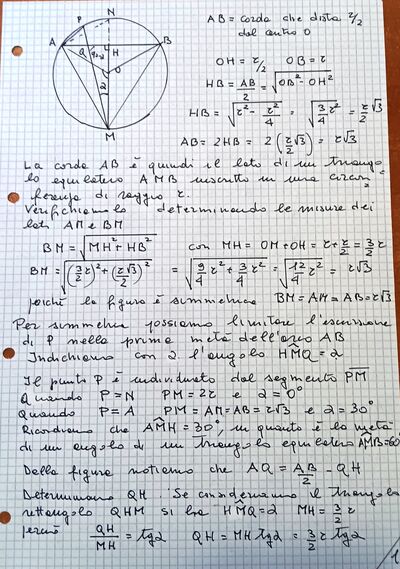 N
P
A Q H B
90-2
O
2
M
AB = corda che dista r/2
dal centro O
OH = r/2 OB = r
HB = AB/2 = √(OB² - OH²)
HB = √(r² - r²/4) = √(3/4 r²) = r/2 √3
AB = 2HB = 2 (r/2 √3) = r√3
La corda AB è quindi il lato di un triango
lo equilatero AMB inscritto in una circon
ferenza di raggio r.
Verifichiamolo determinando le misure dei
lati AM e BM
BM = √(MH² + HB²) con MH = OM + OH = r + r/2 = 3/2 r
BM = √((3/2 r)² + (r/2 √3)²) = √(9/4 r² + 3/4 r²) = √(12/4 r²) = r√3
poiché la figura è simmetrica BM = AM = AB = r√3
Per simmetria possiamo limitare l'escursione
di P nella prima metà dell'arco AB
Indichiamo con 2 l'angolo HMQ = 2
Il punto P è individuato dal segmento PM
Quando P = N PM = 2r e 2 = 0°
Quando P = A PM = AM = AB = r√3 e 2 = 30°
Ricordiamo che AMH = 30°, in quanto è la metà
di un angolo di un triangolo equilatero AMB = 60°
Dalla figura notiamo che AQ = AB/2 - QH
Determiniamo QH. Se consideriamo il triangolo
rettangolo QHM si ha HMQ = 2 MH = 3/2 r
perciò QH/MH = tg2 QH = MH tg2 = 3/2 r tg2
1